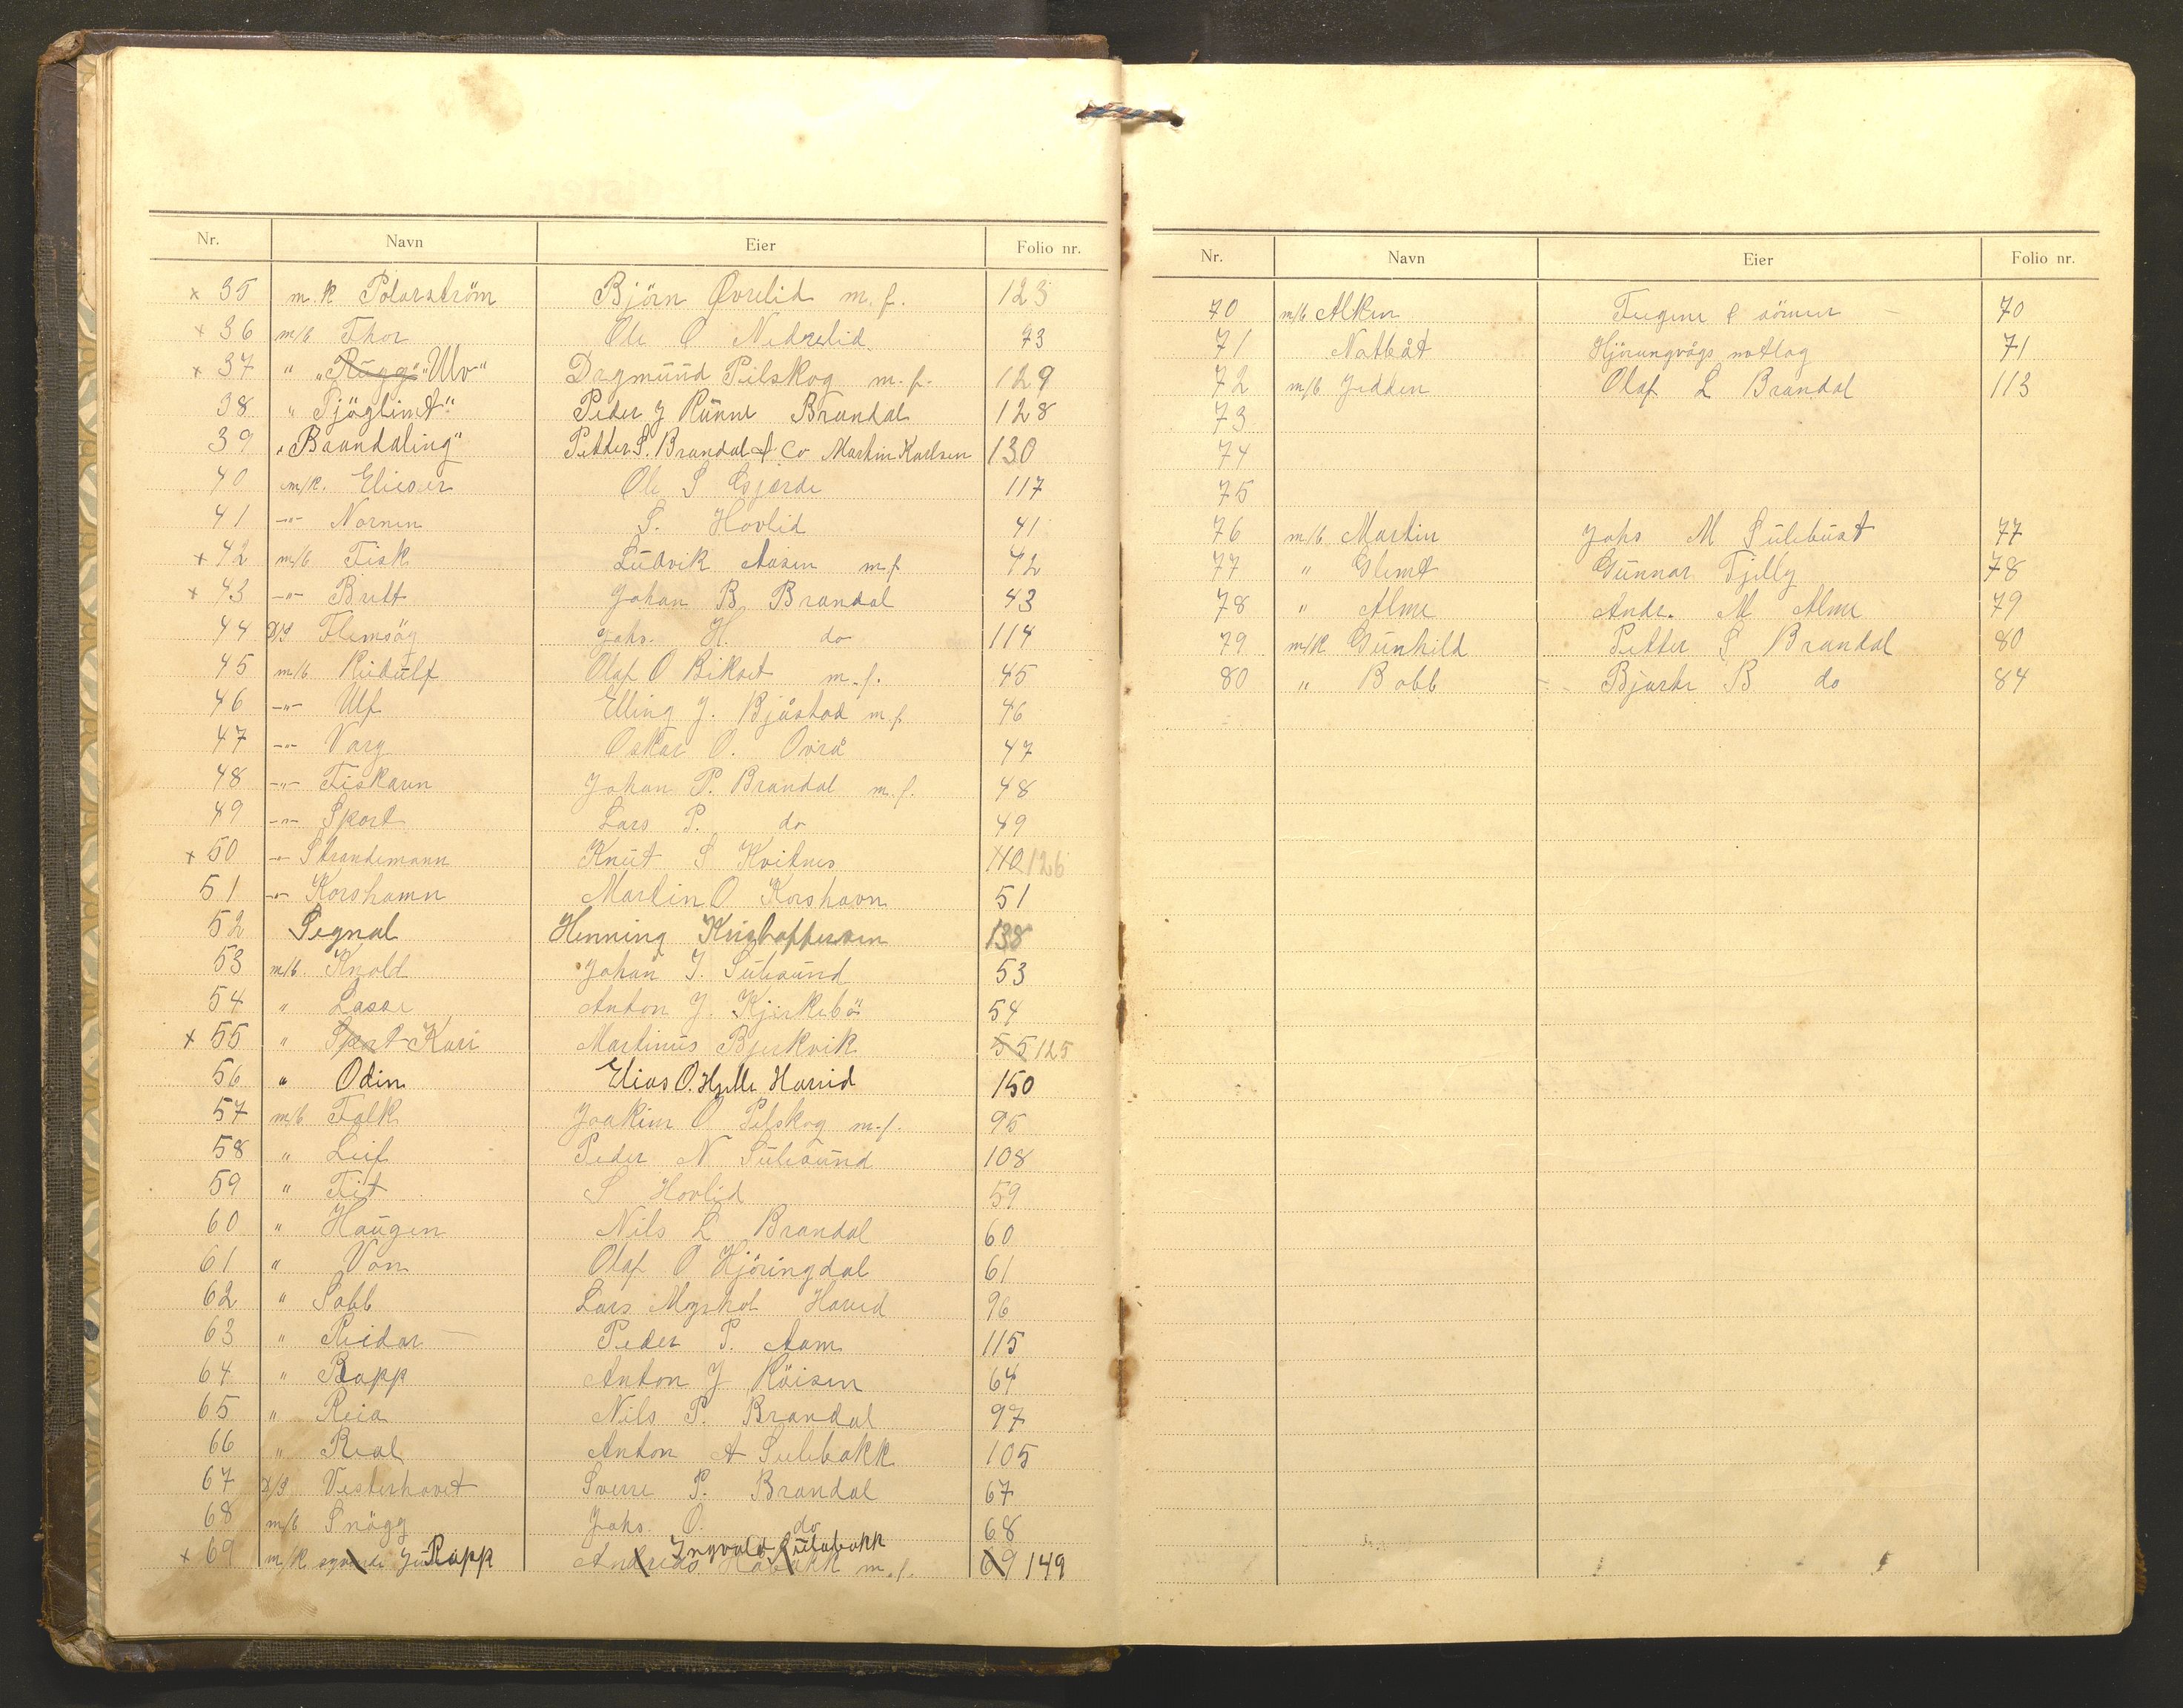 Nr. Navn Eier Folio nr.
x 35 m.k Polarström Björn Øvrelid m.f. 123
x 36 m/b Thor Ole O Nedrelid 93
x 37 " "Rugg" "Ulv" Dagmund Pilskog m.f. 129
38 " Fjöglimt" Peder J Runne Brandal 128
39 "Brandaling" Petter S. Brandal & Co Martin Karlsen 130
40 m/k. Elieser Ole S Gjærde 117
41 -"- Nornen S. Hovlid 41
x 42 m/b Fisk Ludvik Aasen m.f 42
x 43 -"- Britt Johan B. Brandal 43
44 D/S Flemsöy Johs. H. do 114
45 m/b Rudulf Olaf O Rikset m.f. 45
46 -"- Ulf Elling J. Bjåstad m.f. 46
47 -"- Varg Oskar O. Ovrå 47
48 -"- Fiskaren Johan P. Brandal m.f. 48
49 -"- Sport Lars P. do 49
x 50 -"- Strandemann Knut S Kvitnes 110 126
51 -"- Korshamn Martin O Korshavn 51
52 Signal Henning Kristoffersen 138
53 m/b. Knold Johan J. Sulesund 53
54 " Lasse Anton J. Kjirkebö 54
x 55 " Sport Kari Martinus Bjerkvik 55 125
56 " Odin Elias O. Hjelle Hareid 150
57 m/b Falk Joakim O Pilskog m.f. 95
58 " Leif Peder N Sulesund 108
59 " Fit S Hovlid 59
60 " Haugen Nils L Brandal 60
61 " Von Olaf O Hjöringdal 61
62 " Sabb Lars Myrhol Hareid 96
63 " Reidar Peder P. Aam 115
64 " Rapp Anton J Röisen 64
65 " Reia Nils P. Brandal 97
66 " Real Anton A Sulebakk 105
67 D/S Vesterhavet Sverre P. Brandal 67
68 m/b Snögg Johs. O. do 68
Ingvald Sulebakk
x 69 m/k Rapp Andreas Habakk m.f. 69 149
Nr. Navn Eier Folio nr.
70 m/b Alken Eugene 70
71 Notbåt Hjörungvågs notlag 71
72 m/b Jedden Olaf L Brandal 113
73
74
75
76 m/b Martin Johs M Sulebust 77
77 " Glimt Gunnar Tjelly 78
78 " Alme Andr. M Alme 79
79 m/k Gunhild Petter S Brandal 80
80 " Bobb Bjarte B do 84